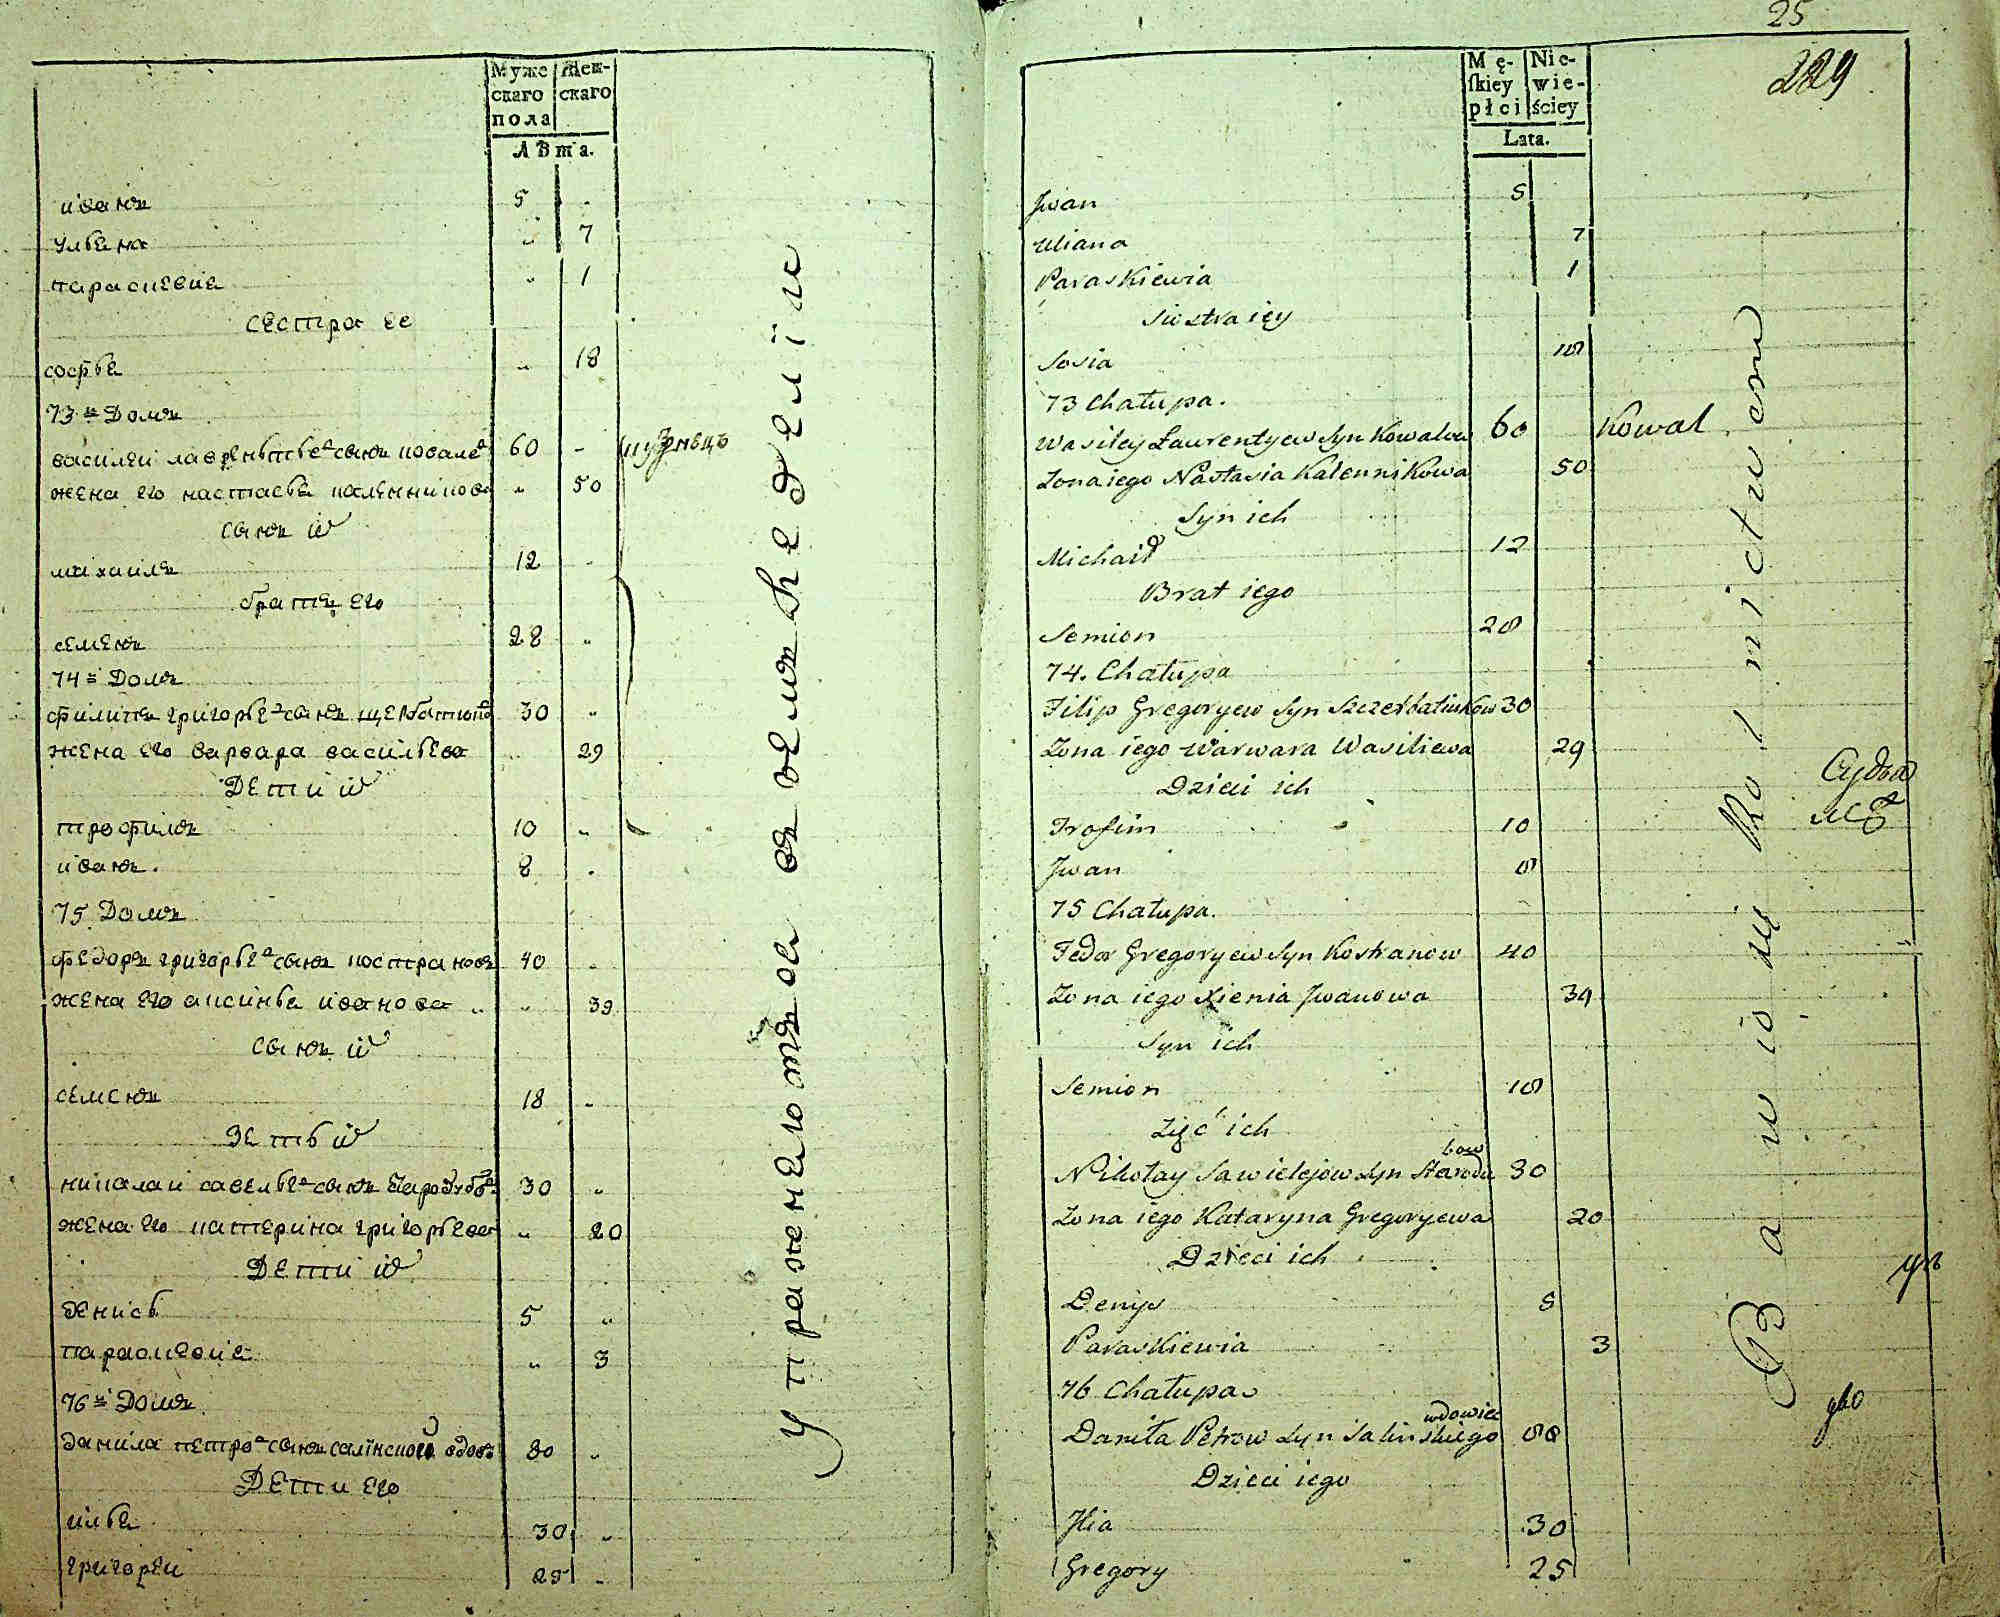 Муже
скаго
пола
Жен-
скаго
лѣта.
иванъ 5
ульяна 7
параскевия 1
сестра ее
софья 18
73й Домъ
василеи лаврентьевъ сынъ ковалевъ 60 кузнецъ
жена его настасья каленникова 50
сынъ их
михаила 12
братъ его
семенъ 28
74й Домъ
филипъ григорьевъ сынъ щербатюковъ 30
жена его варвара васильева 29
Дети их
трофимъ 10
иванъ 8
75 Домъ
федоръ григорьевъ сынъ костра новъ 40
жена его аксинья иванова 39
сынъ их
семенъ 18
Зеть их
николаи савельевъ сынъ стародубовъ 30
жена его катерина григорьева 20
Дети их
денисъ 5
параскевия 3
76й Домъ
данила петровъ сынъ салинского вдовъ 80
Дети его
илья 30
григореи 25
Упражняютъся въ земледелии
25
229
Mę-
skiey
płci
Nie-
wie-
ściey
Lata.
Jwan 5
Uliana 7
Paraskiewia 1
Siostra iey
Sosia 18
73 Chałupa.
Wasiley Ławrentyew Syn Kowalew 60 Kowal
Zona iego Nastasia Kalennikowa 50
Syn ich
Michaił 12
Brat iego
Semion 28
74. Chałupa
Filip Gregoryew Syn Szczerbatiukow 30
Zona iego Warwara Wasiliewa 29
Dzieci ich
Trofim 10
Jwan 8
75 Chałupa.
Fedor Gregoryew Syn Kostranow 40
Zona iego Xienia Jwanowa 39
Syn ich
Semion 18
Zięć ich
Nikołay Sawielejow Syn Starodu
bow 30
Zona iego Kataryna Gregoryewa 20
Dzieci ich
Denys 5
Paraskiewia 3
76 Chałupa
wdowiec
Daniła Petrow Syn Salinskiego 80
Dzieci iego
Jlia 30
Gregory 25
Bawią się Rolnictwem
Судья